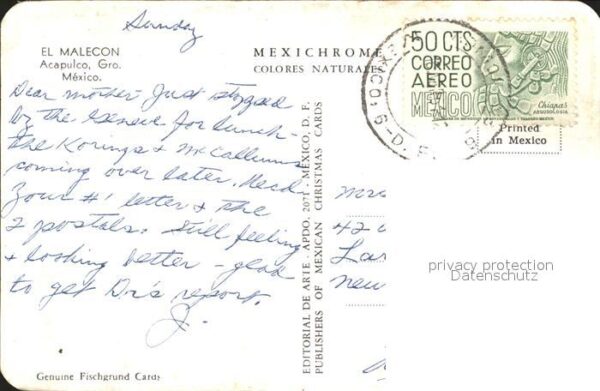 Sunday
EL MALECON
Acapulco, Gro.
México.
MEXICHROME
COLORES NATURALES
Dear mother - Just stopped
by the for lunch -
the Korings & McCallums
coming over later. Rec'd
your #1 letter & the
2 postals. Still feeling
& looking better - glad
to get Dr's report.
J.
Genuine Fischgrund Cards
EDITORIAL DE ARTE APDO. 2071 MEXICO, D. F.
PUBLISHERS OF MEXICAN CHRISTMAS CARDS
50 CTS
CORREO
AEREO
MEXICO
Chiapas
ARQUEOLOGIA
Printed
in Mexico
Mrs
42
Lar
new
privacy protection
Datenschutz